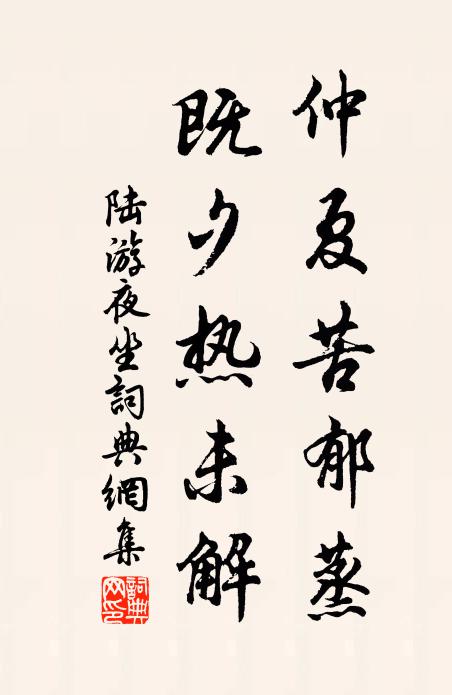 仲夏苦郁蒸
既夕热未解
陆游夜坐詞典網集
詞典网印